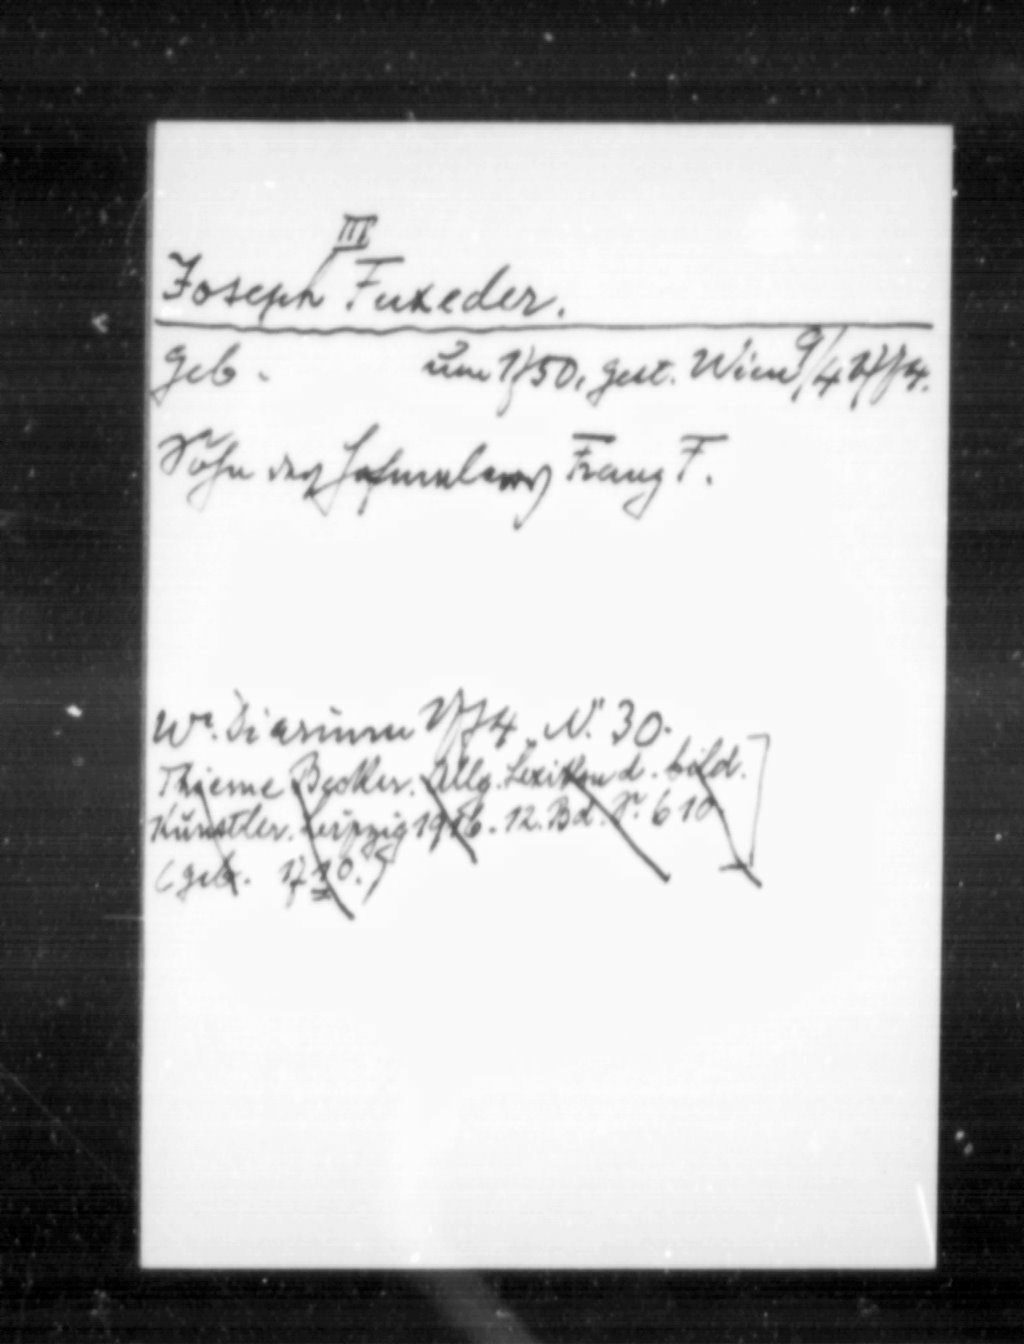 III
Joseph Fuxeder.
geb. um 1750, gest. Wien 9/4 1774.
Sohn des Hofmalers Franz F.
Wr. Diarium 1774, N. 30.
Thieme Becker. Allg. Lexikon d. bild.
Künstler. Leipzig 1916. 12. Bd. S. 610.
(geb. 1710.)